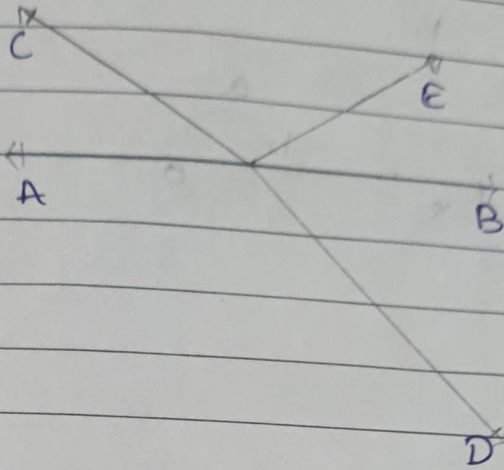 C
E
A
B
D